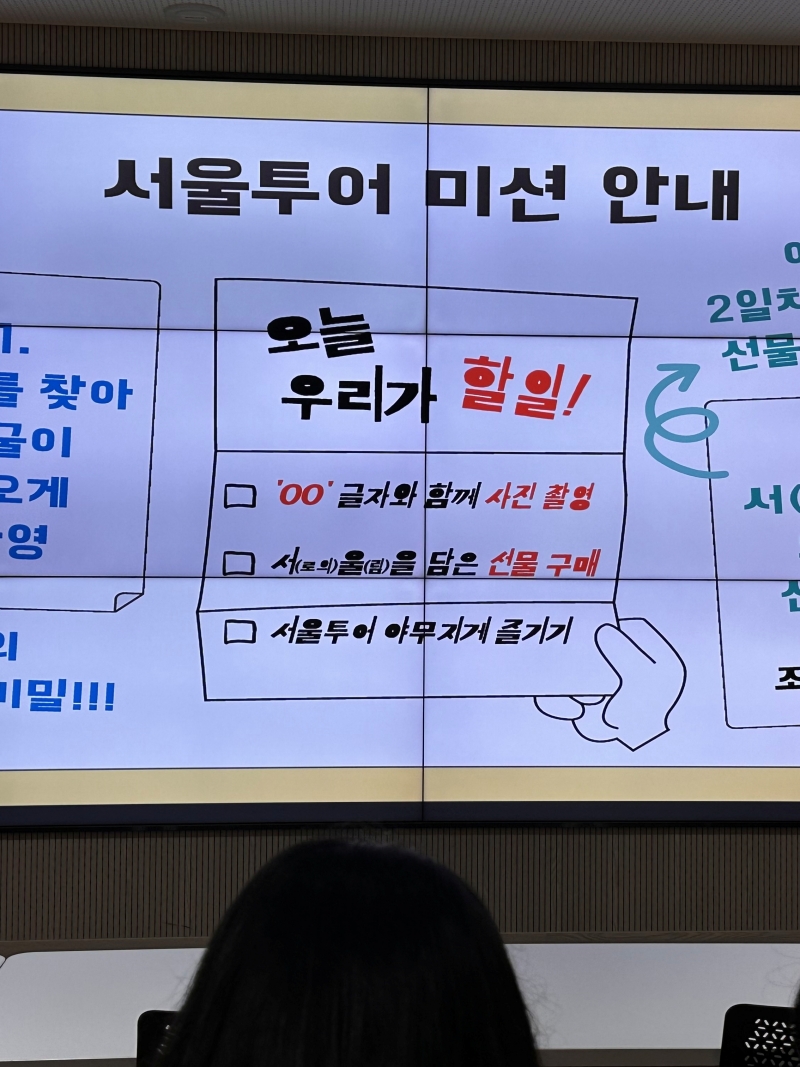 서울투어 미션 안내
1.
를 찾아
굴이
오게
영
의
비밀!!!
오늘
우리가 할일!
'OO' 글자와 함께 사진 촬영
서(로의)울(림)을 담은 선물 구매
서울투어 야무지게 즐기기
2일차
선물
서(